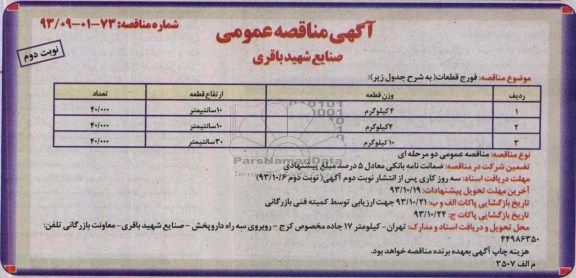 آگهی مناقصه عمومی
شماره مناقصه: ۷۳-۰۱-۹۳/۰۹
صنایع شهید باقری
نوبت دوم
موضوع مناقصه: فورج قطعات( به شرح جدول زیر):
ردیف وزن قطعه ارتفاع قطعه تعداد
۱ ۴کیلوگرم ۱۰سانتیمتر ۴۰/۰۰۰
۲ ۴کیلوگرم ۱۰سانتیمتر ۴۰/۰۰۰
۳ ۱۰کیلوگرم ۳۰سانتیمتر ۴۰/۰۰۰
ParsNamadData
نوع مناقصه: مناقصه عمومی دو مرحله ای
تضمین شرکت در مناقصه: ضمانت نامه بانکی معادل ۵ درصد مبلغ پیشنهادی
مهلت دریافت اسناد: سه روز کاری پس از انتشار نوبت دوم آگهی( نوبت دوم ۹۳/۱۰/۶)
آخرین مهلت تحویل پیشنهادات: ۹۳/۱۰/۱۹
تاریخ بازگشایی پاکات الف و ب: ۹۳/۱۰/۲۱ جهت ارزیابی توسط کمیته فنی بازرگانی
تاریخ بازگشایی پاکات ج: ۹۳/۱۰/۲۴
محل تحویل و دریافت اسناد و مدارک: تهران- کیلومتر ۱۷ جاده مخصوص کرج - روبروی سه راه داروپخش - صنایع شهید باقری- معاونت بازرگانی تلفن:
۴۴۹۸۶۳۵۰
هزینه چاپ آگهی بعهده برنده مناقصه خواهد بود.
م الف ۳۵۰۷